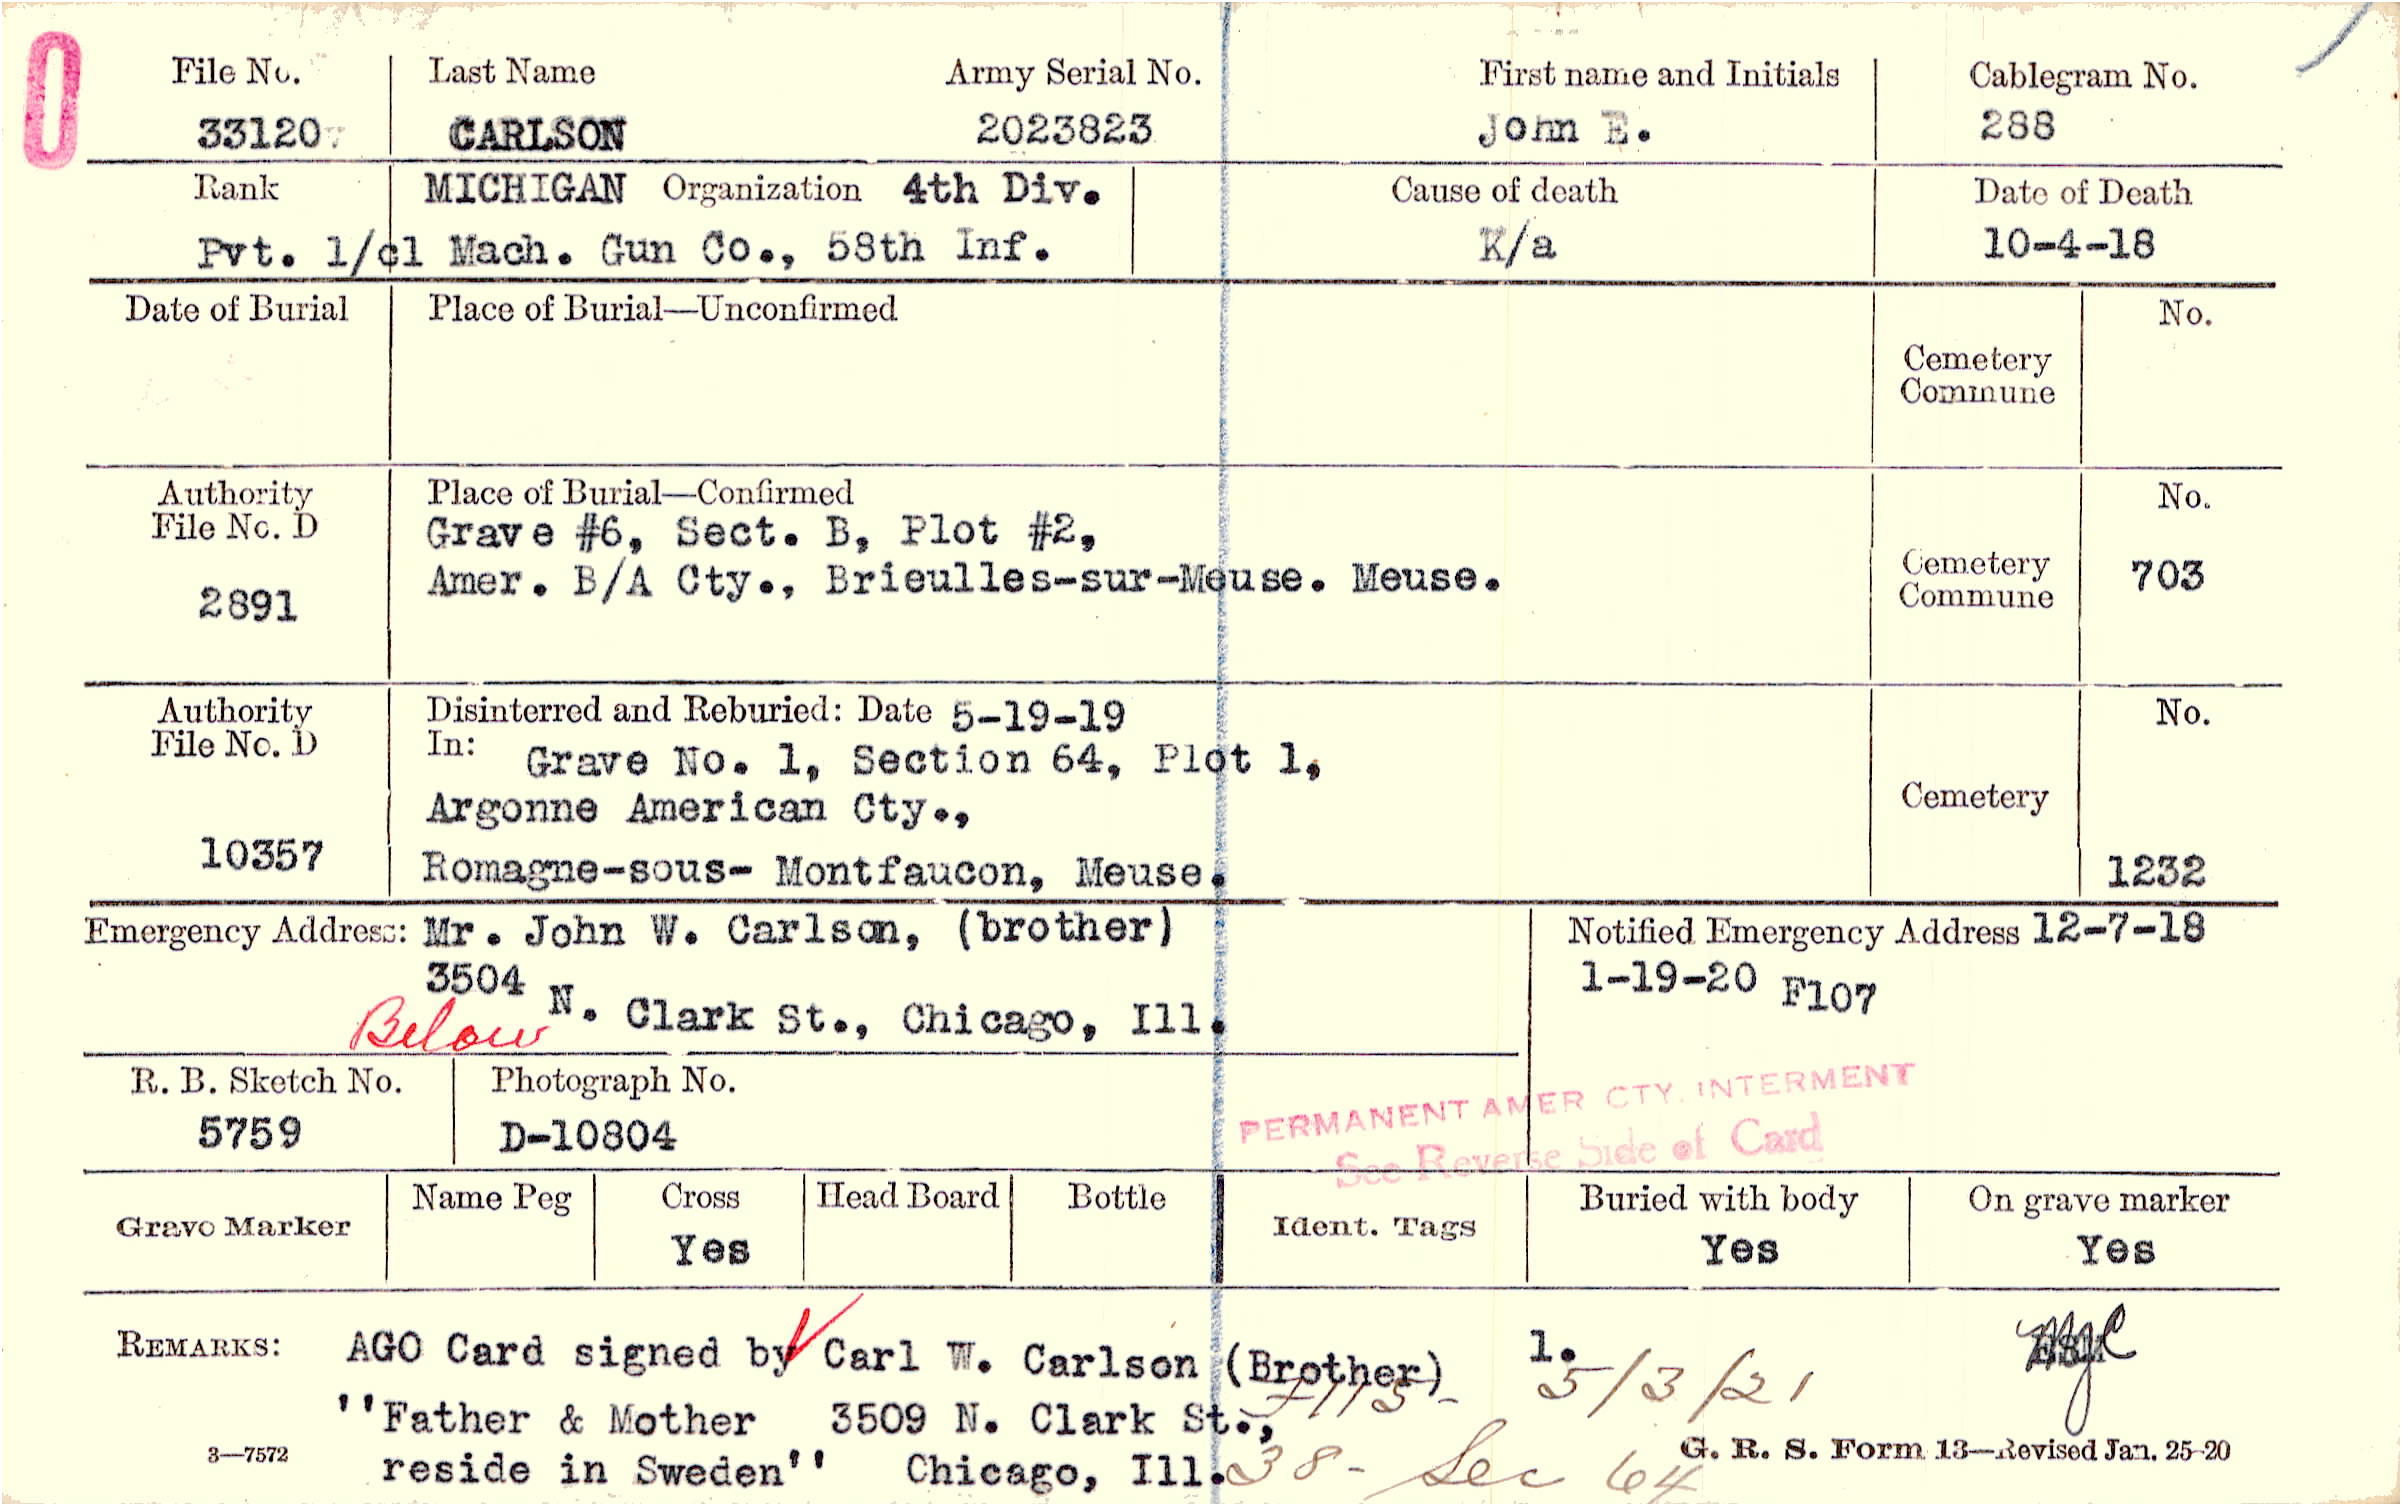 File No. Last Name Army Serial No. First name and Initials Cablegram No.
33120 CARLSON 2023823 John E. 288
Rank MICHIGAN Organization 4th Div. Cause of death Date of Death
Pvt. 1/cl Mach. Gun Co., 58th Inf. K/a 10-4-18
Date of Burial Place of Burial—Unconfirmed No.
Cemetery
Commune
Authority Place of Burial—Confirmed No.
File No. D Grave #6, Sect. B, Plot #2,
2891 Amer. B/A Cty., Brieulles-sur-Meuse. Meuse. Cemetery 703
Commune
Authority Disinterred and Reburied: Date 5-19-19 No.
File No. D In: Grave No. 1, Section 64, Plot 1,
Argonne American Cty., Cemetery
10357 Romagne-sous- Montfaucon, Meuse. 1232
Emergency Address: Mr. John W. Carlson, (brother) Notified Emergency Address 12-7-18
3504 N. Clark St., Chicago, Ill. 1-19-20 F107
Below
R. B. Sketch No. Photograph No.
5759 D-10804
PERMANENT AMER CTY. INTERMENT
See Reverse Side of Card
Grave Marker Name Peg Cross Head Board Bottle Ident. Tags Buried with body On grave marker
Yes Yes Yes
REMARKS: AGO Card signed by Carl W. Carlson (Brother) 1.
5/3/21
''Father & Mother 3509 N. Clark St.,
reside in Sweden'' Chicago, Ill. 38- Sec 64
3—7572 G. R. S. Form 13—Revised Jan. 25-20